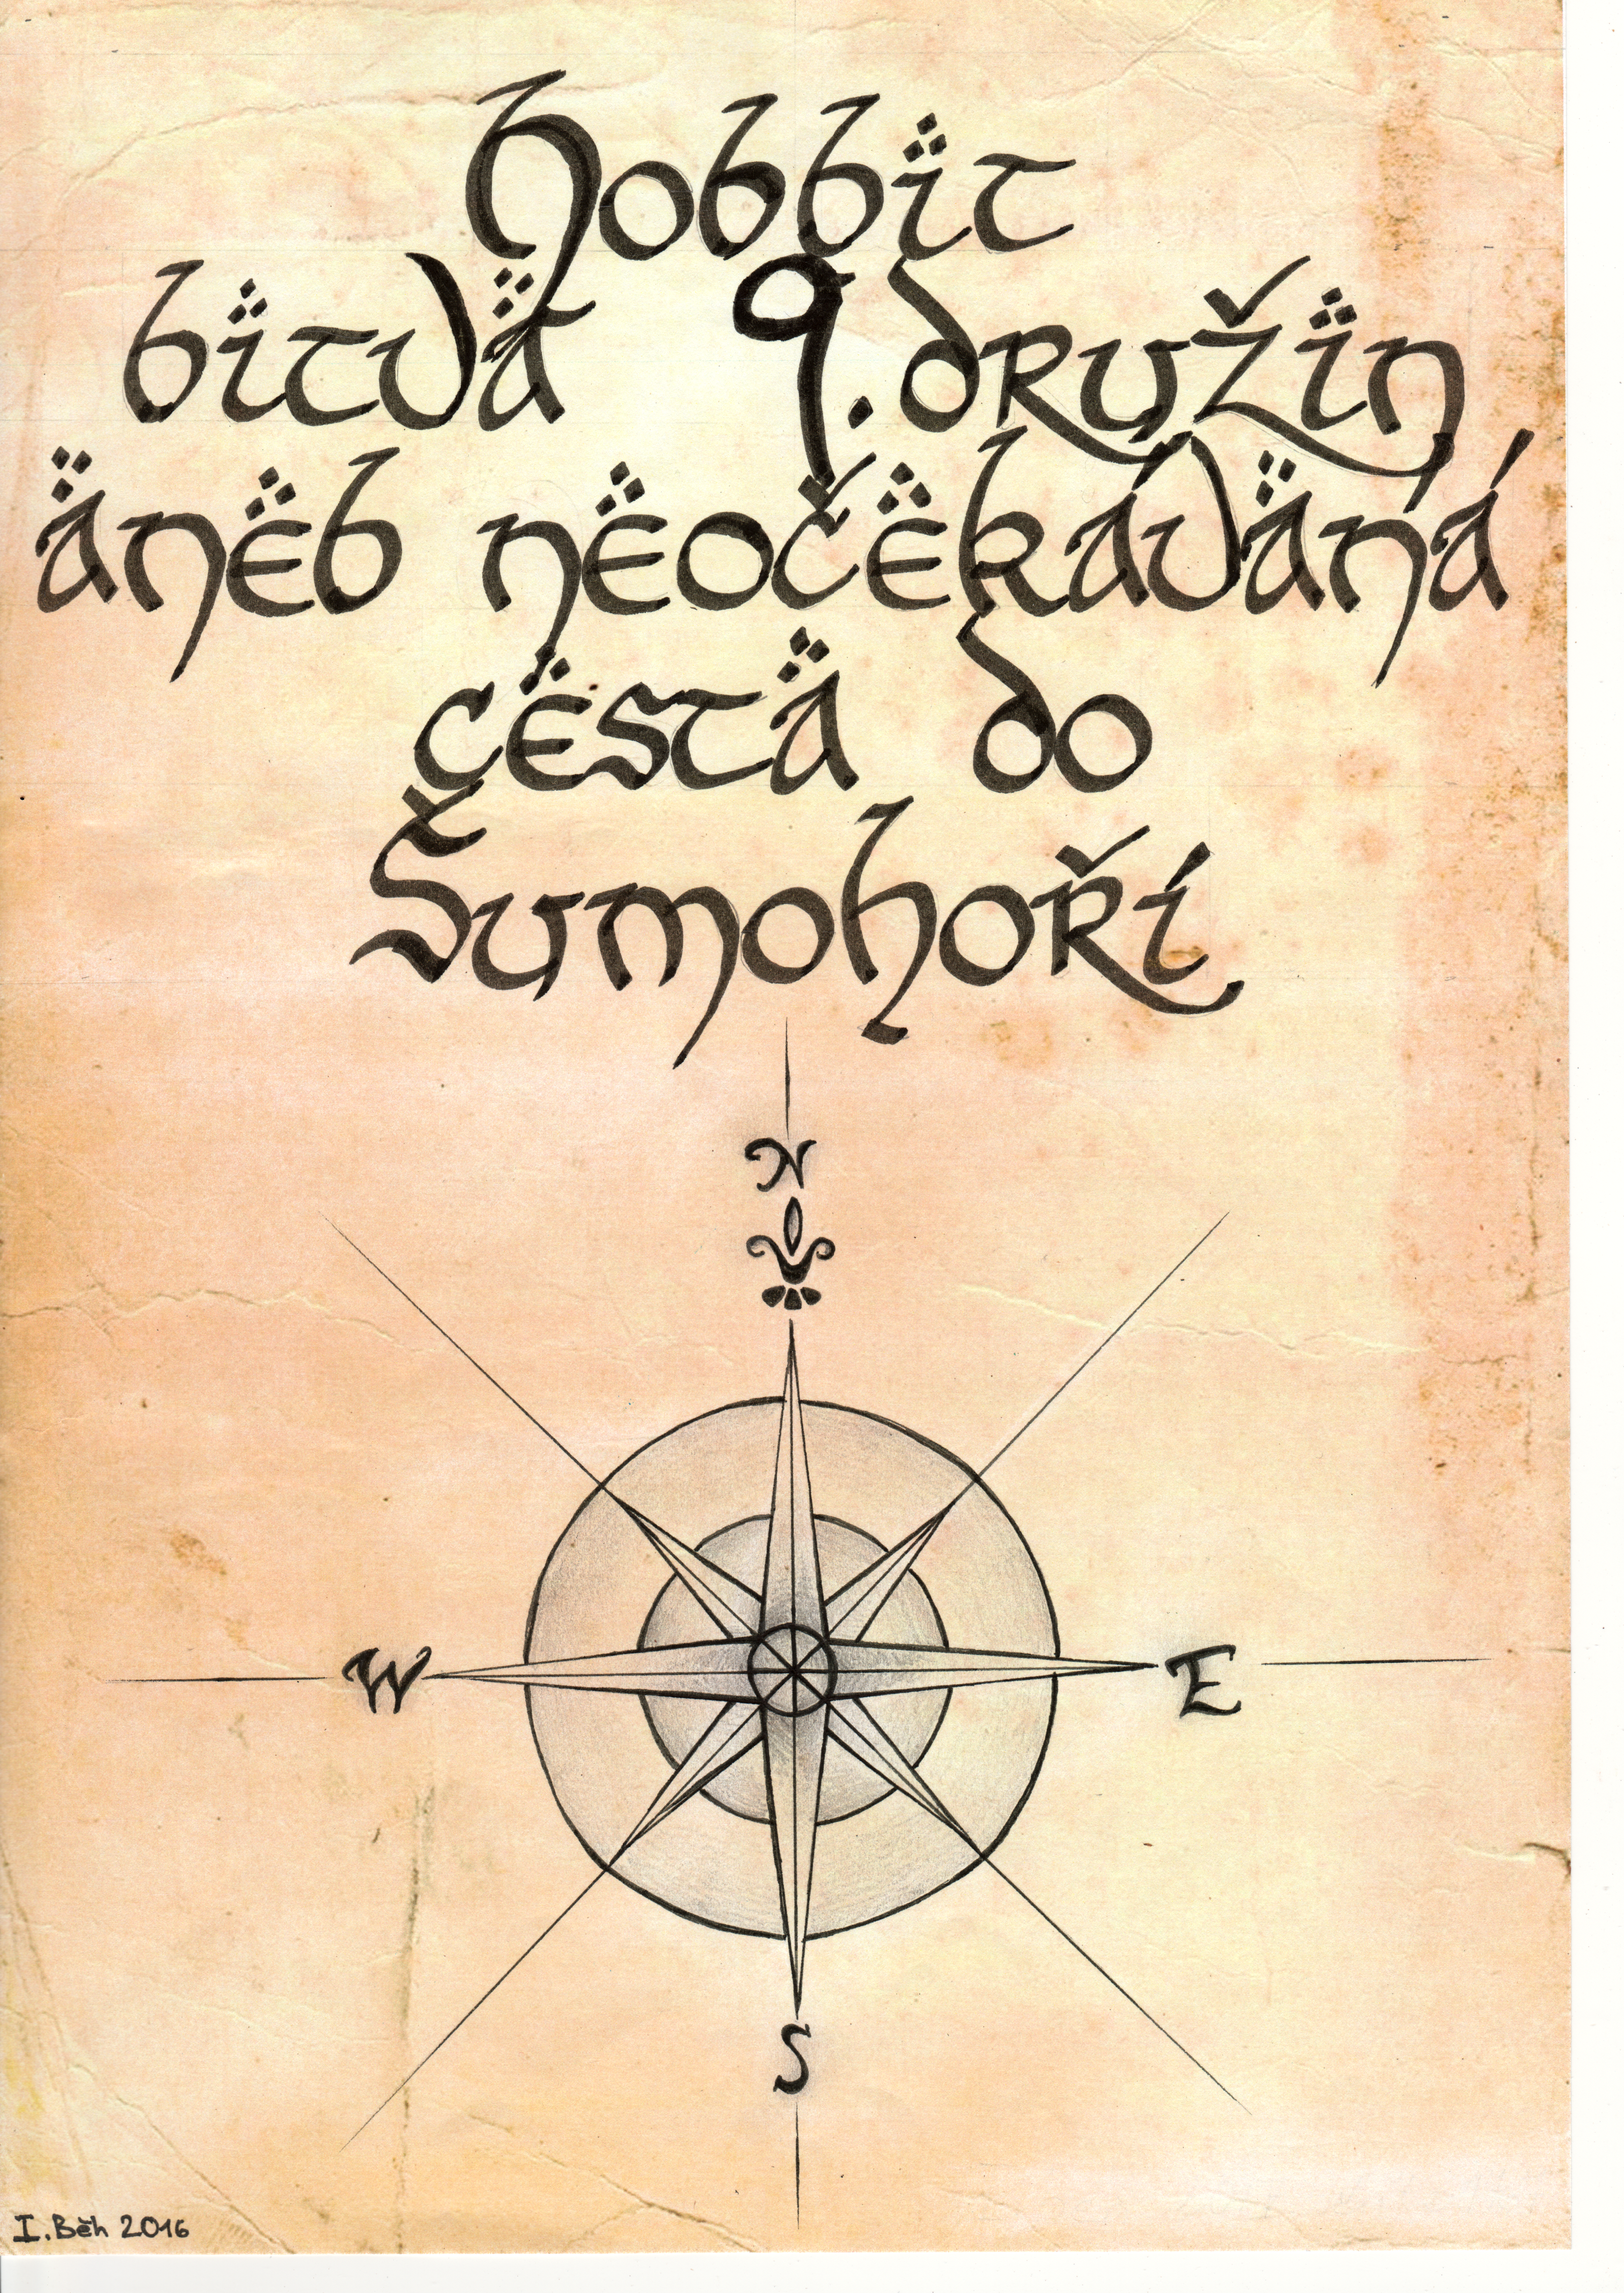 Hobbit
bitva 9. družin
aneb neočekávaná
cesta do
Šumohoří
N
W
E
S
I. Běh 2016